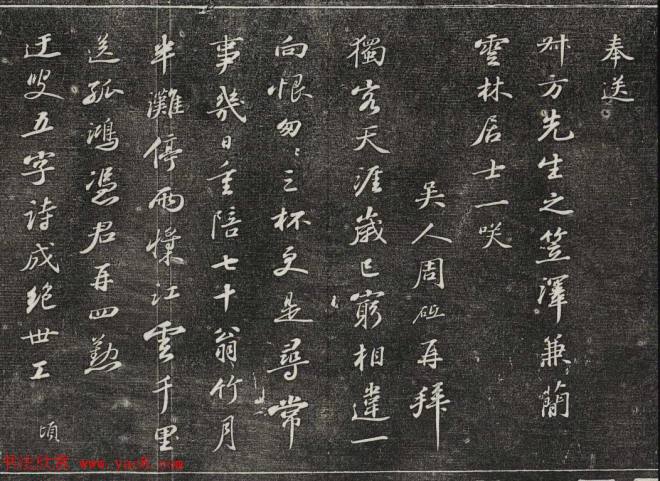 奉送
叔方先生之笠澤兼蘭
雲林居士一咲
吴人周砥再拜
獨客天涯歲已窮相違一
向恨匆〻三杯更是尋常
事幾日重陪七十翁竹月
半灘停雨懞江雲千里
送孤鴻憑君再四懃
迂叟五字詩成絶世工 頃
书法欣赏 www.yac8.com